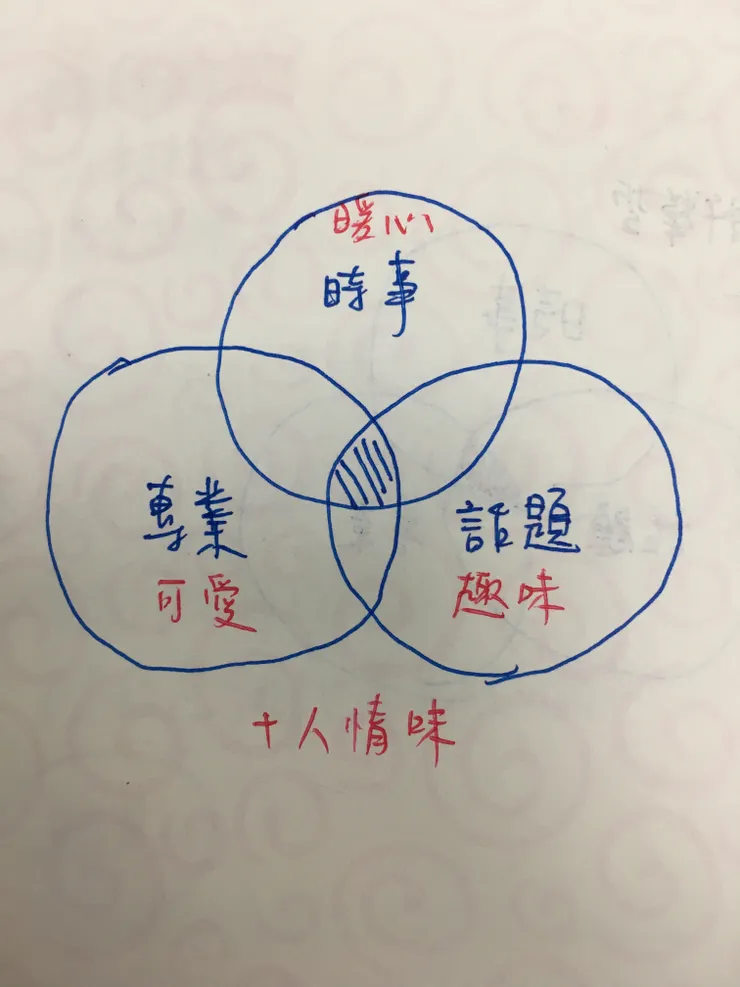 暖心
時事
專業
可愛
話題
趣味
+人情味